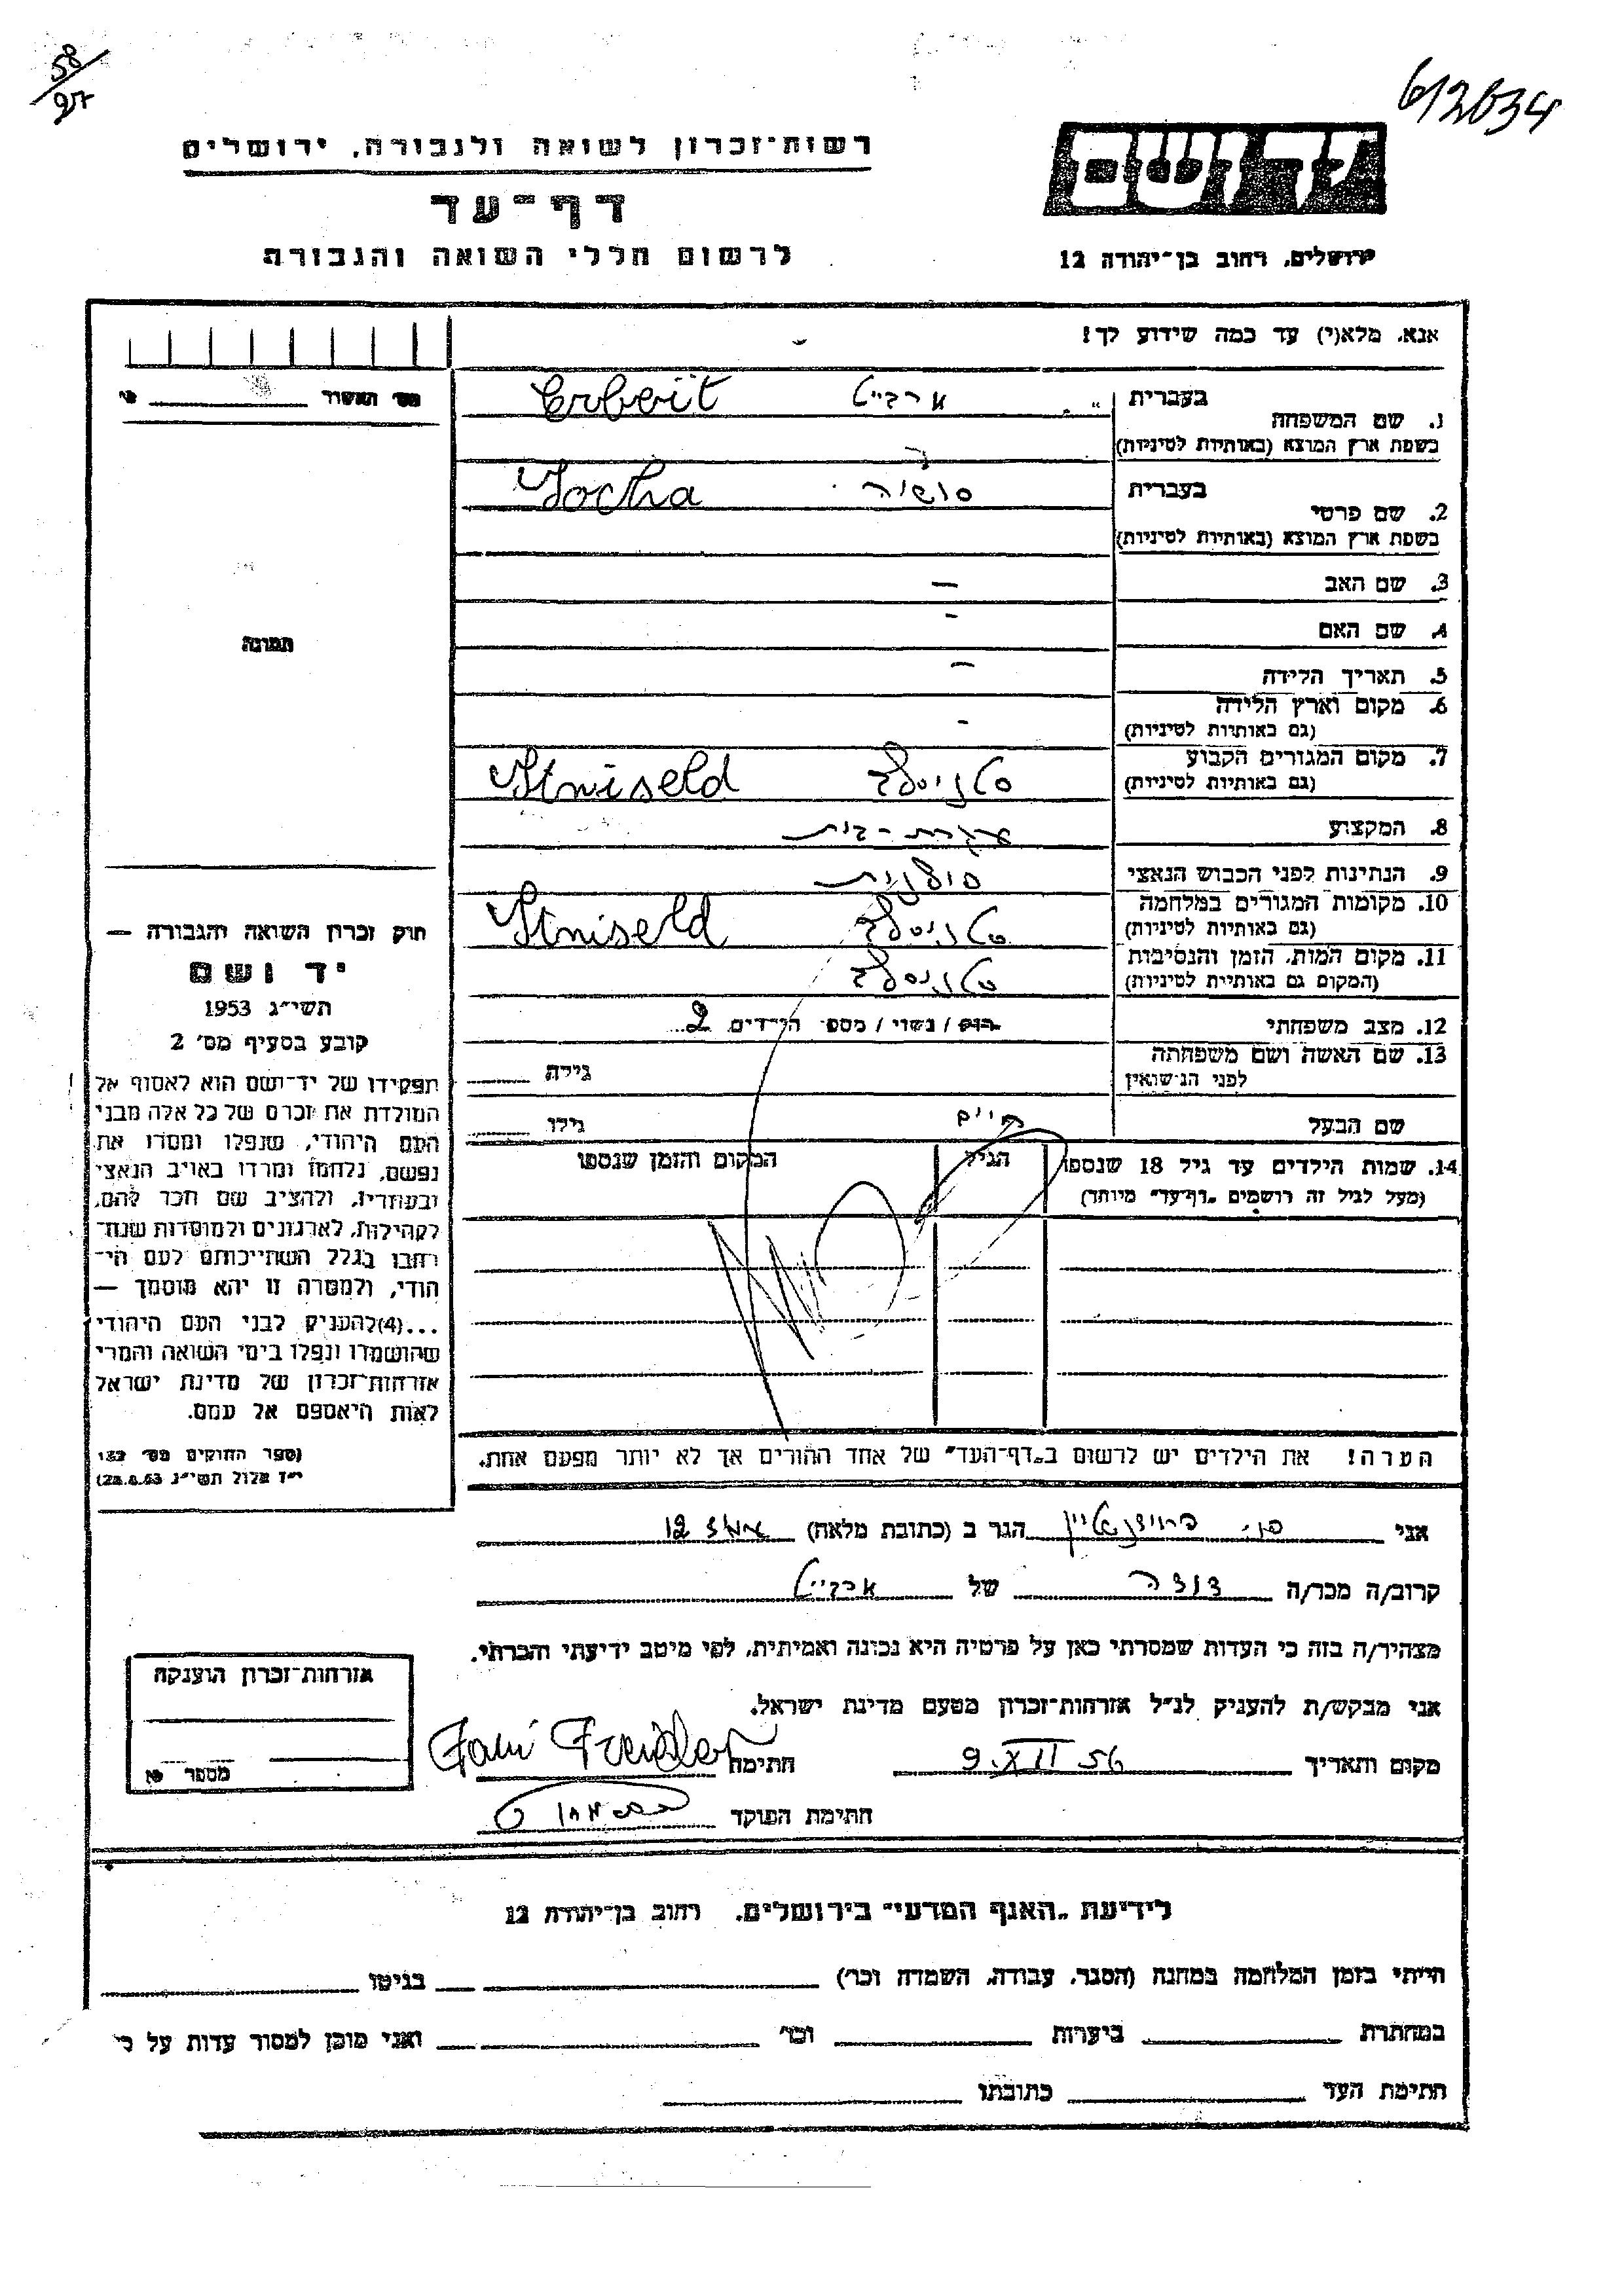 58/27
612634
רשות-זכרון לשואה ולגבורה, ירושלים
דף-עד
לרשום חללי השואה והגבורה
יד ושם
ירושלים, רחוב בן-יהודה 12
אנא, מלא(י) עד כמה שידוע לך!
מס' האשור
1. שם המשפחה בעברית ארבייט Erbeit
בשפת ארץ המוצא (באותיות לטיניות)
2. שם פרטי בעברית סושה Socha
בשפת ארץ המוצא (באותיות לטיניות)
3. שם האב –
4. שם האם –
תמונה
5. תאריך הלידה –
6. מקום וארץ הלידה -
(גם באותיות לטיניות)
7. מקום המגורים הקבוע
(גם באותיות לטיניות)
8. המקצוע עקרת-בית
9. הנתינות לפני הכבוש הנאצי פולנית
10. מקומות המגורים במלחמה
(גם באותיות לטיניות)
11. מקום המות, הזמן והנסיבות
(המקום גם באותיות לטיניות)
12. מצב משפחתי רווק / נשוי / מספר הילדים 2
13. שם האשה ושם משפחתה
לפני הנישואין גילה
שם הבעל חיים גילו
14. שמות הילדים עד גיל 18 שנספו הגיל המקום והזמן שנספו
(מעל לגיל זה רושמים "דף-עד" מיוחד)
חוק זכרון השואה והגבורה —
יד ושם
תשי"ג 1953
קובע בסעיף מס' 2
תפקידו של יד-ושם הוא לאסוף אל
המולדת את זכרם של כל אלה מבני
העם היהודי, שנפלו ומסרו את
נפשם, נלחמו ומרדו באויב הנאצי
ובעוזריו, ולהציב שם וזכר להם,
לקהילות, לארגונים ולמוסדות שנח-
רבו בגלל השתייכותם לעם הי-
הודי, ולמטרה זו יהא מוסמך —
...(4)להעניק לבני העם היהודי
שהושמדו ונפלו בימי השואה והמרי
אזרחות-זכרון של מדינת ישראל
לאות היאספם אל עמם.
(ספר החוקים מס' 132
י"ז אלול תשי"ג 28.8.53)
הערה! את הילדים יש לרשום ב"דף-העד" של אחד ההורים אך לא יותר מפעם אחת.
אני הגר ב (כתובת מלאה) 12
קרוב/ה מכר/ה דודה של ארבייט
מצהיר/ה בזה כי העדות שמסרתי כאן על פרטיה היא נכונה ואמיתית, לפי מיטב ידיעתי והכרתי.
אני מבקש/ת להעניק לנ"ל אזרחות-זכרון מטעם מדינת ישראל.
מקום ותאריך 9.XII 56 חתימה
חתימת הפוקד
אזרחות-זכרון הוענקה
מספר
לידיעת "האגף המדעי" בירושלים, רחוב בן-יהודה 12
הייתי בזמן המלחמה במחנה (הסגר, עבודה, השמדה וכו') בגיטו
במחתרת ביערות וכו' ואני מוכן למסור עדות על כך
חתימת העד כתובתו